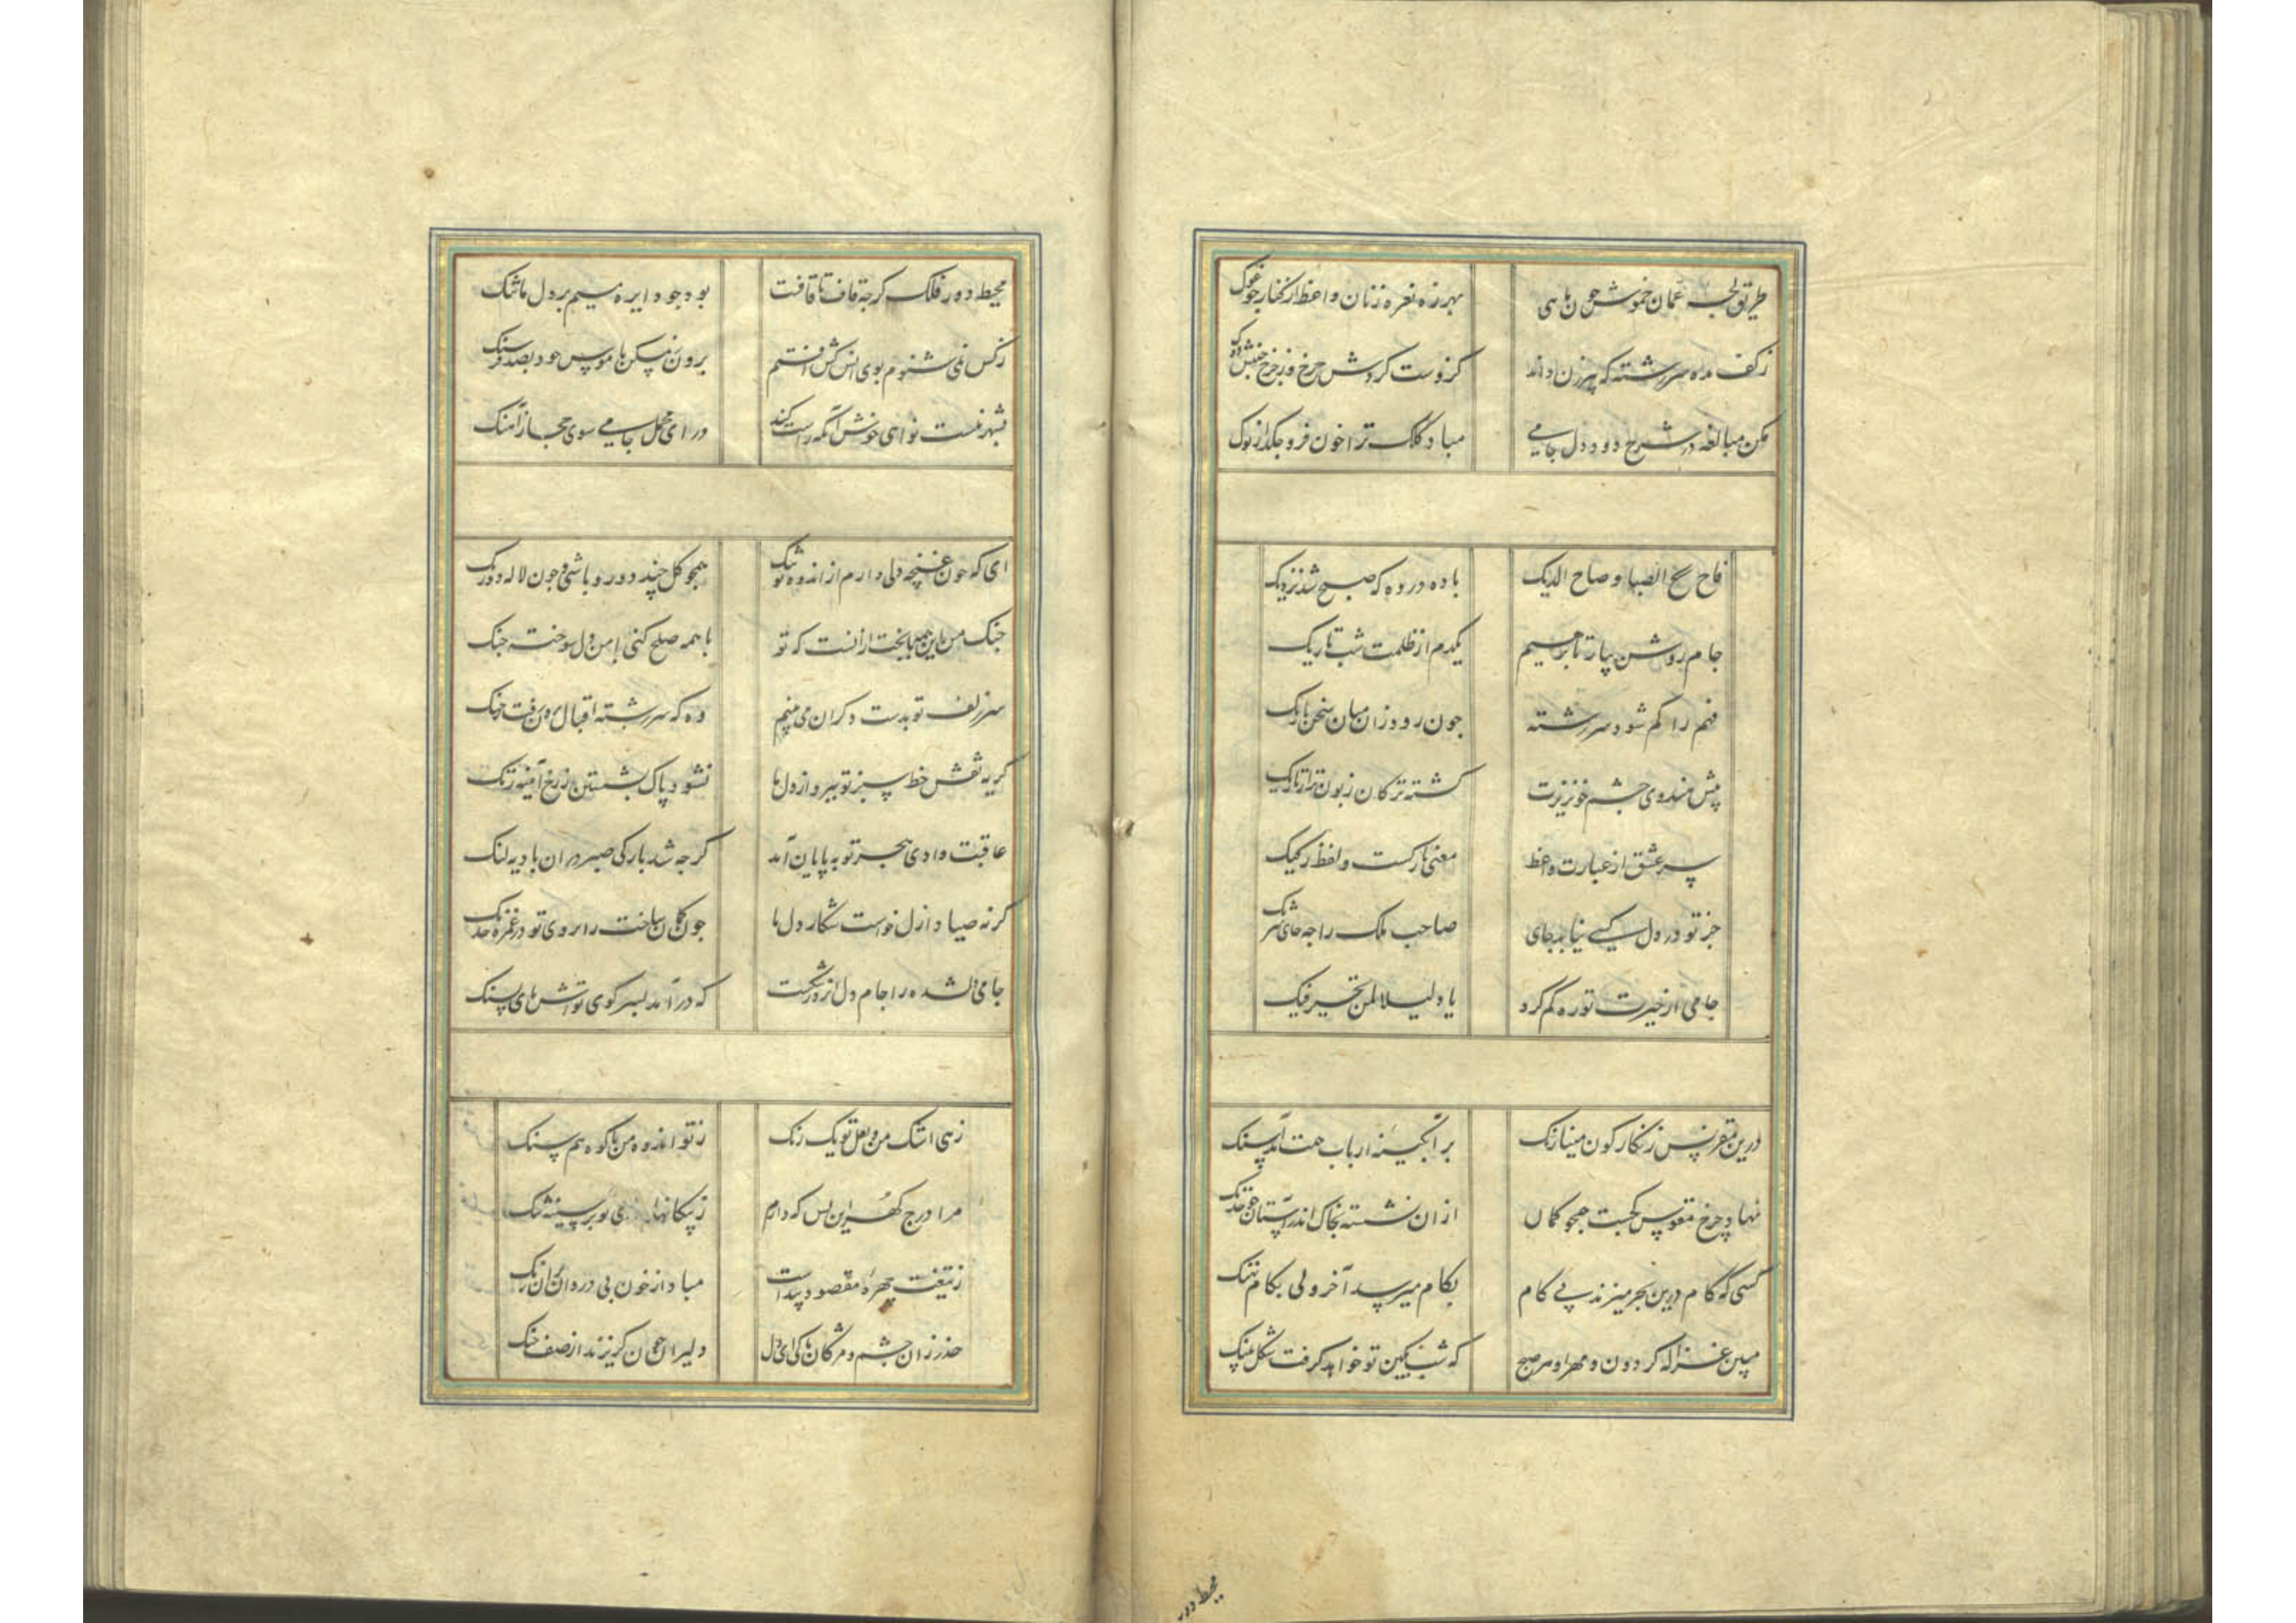 طریق لجه عمان خموش چون ماهی بهرزه نعره زنان واعظ از کنار چو غوک
ز کف مده سررشته که پیرزن داند کزوست گردش چرخ و ز چرخ جنبش دوک
مکن مبالغه در شرح دود دل جامی مباد کلک ترا خون فرو چکد از نوک
فاح ریح الصبا و صاح الدیک باده در ده که صبح شد نزدیک
جام روشن بیار تا برهیم یکدم از ظلمت شب تاریک
فهم را کم شود سررشته چون رود زان میان سخن باریک
پیش هندوی چشم خونریزت گشته ترکان زبون تر از تاجیک
سر عشق از عبارت واعظ معنی نازکست و لفظ رکیک
جز تو در دل کسی نیابد جای صاحب ملک را چه جای شریک
جامی از حیرت تو ره گم کرد یا دلیلا لمن تحیر فیک
درین مقرنس زنگارگون مینا رنگ بر آبگینه ارباب همت آمد سنگ
نهاد چرخ مقوس کجست همچو کمان ازان نشسته بخاک اندر استان چو خدنگ
کسی که گام درین بحر میزند پی کام بکام میرسد آخر ولی بکام نهنگ
مبین غزاله گردون و مهر او هر صبح که شب بکین تو خواهد گرفت شکل پلنگ
محیط دور
محیط دور فلک گرچه قاف تا قافست بود چو دایره میم بر دل ما تنگ
ز کس نمی شنوم بوی انس کش افتم برون نمیکن با موس خود بصد فرسنگ
بشهر نیست نواهی خوش آنکه راست کند درای محمل جامی سوی حجاز آهنگ
ای که چون غنچه دلی دارم از اندوه تو تنگ همچو گل چند دورو باشی و چون لاله دورنگ
جنگ من با این همه با بخت ازانست که تو با همه صلح کنی با من دل سوخته جنگ
سر زلف تو بدست دگران می بینم وه که سررشته اقبال برون رفت ز چنگ
گریه نقش خط سبز تو نبرد از دل ما نشود پاک بشستن ز رخ آینه زنگ
عاقبت وادی هجر تو به پایان آمد گرچه شد بارگی صبر دران بادیه لنگ
گر نه صیاد ازل خواست شکار دل ما چون کمان ساخت را بروی تو و ز غمزه خدنگ
جامی دلشده را جام دل از درد شکست که درآمد بسر کوی تواش پای بسنگ
زهی اشک من و لعل تو یک رنگ ز تو اندوه من با کوه هم سنگ
مرا درج گهر این بس که دارم ز پیکانها تو بر سینه تنگ
ز تیغت چهره مقصود پیداست مباد از خون بی دردان بران زنگ
حذر زان چشم و مژگان پاک ای دل دلیران چون گریزند از صف جنگ